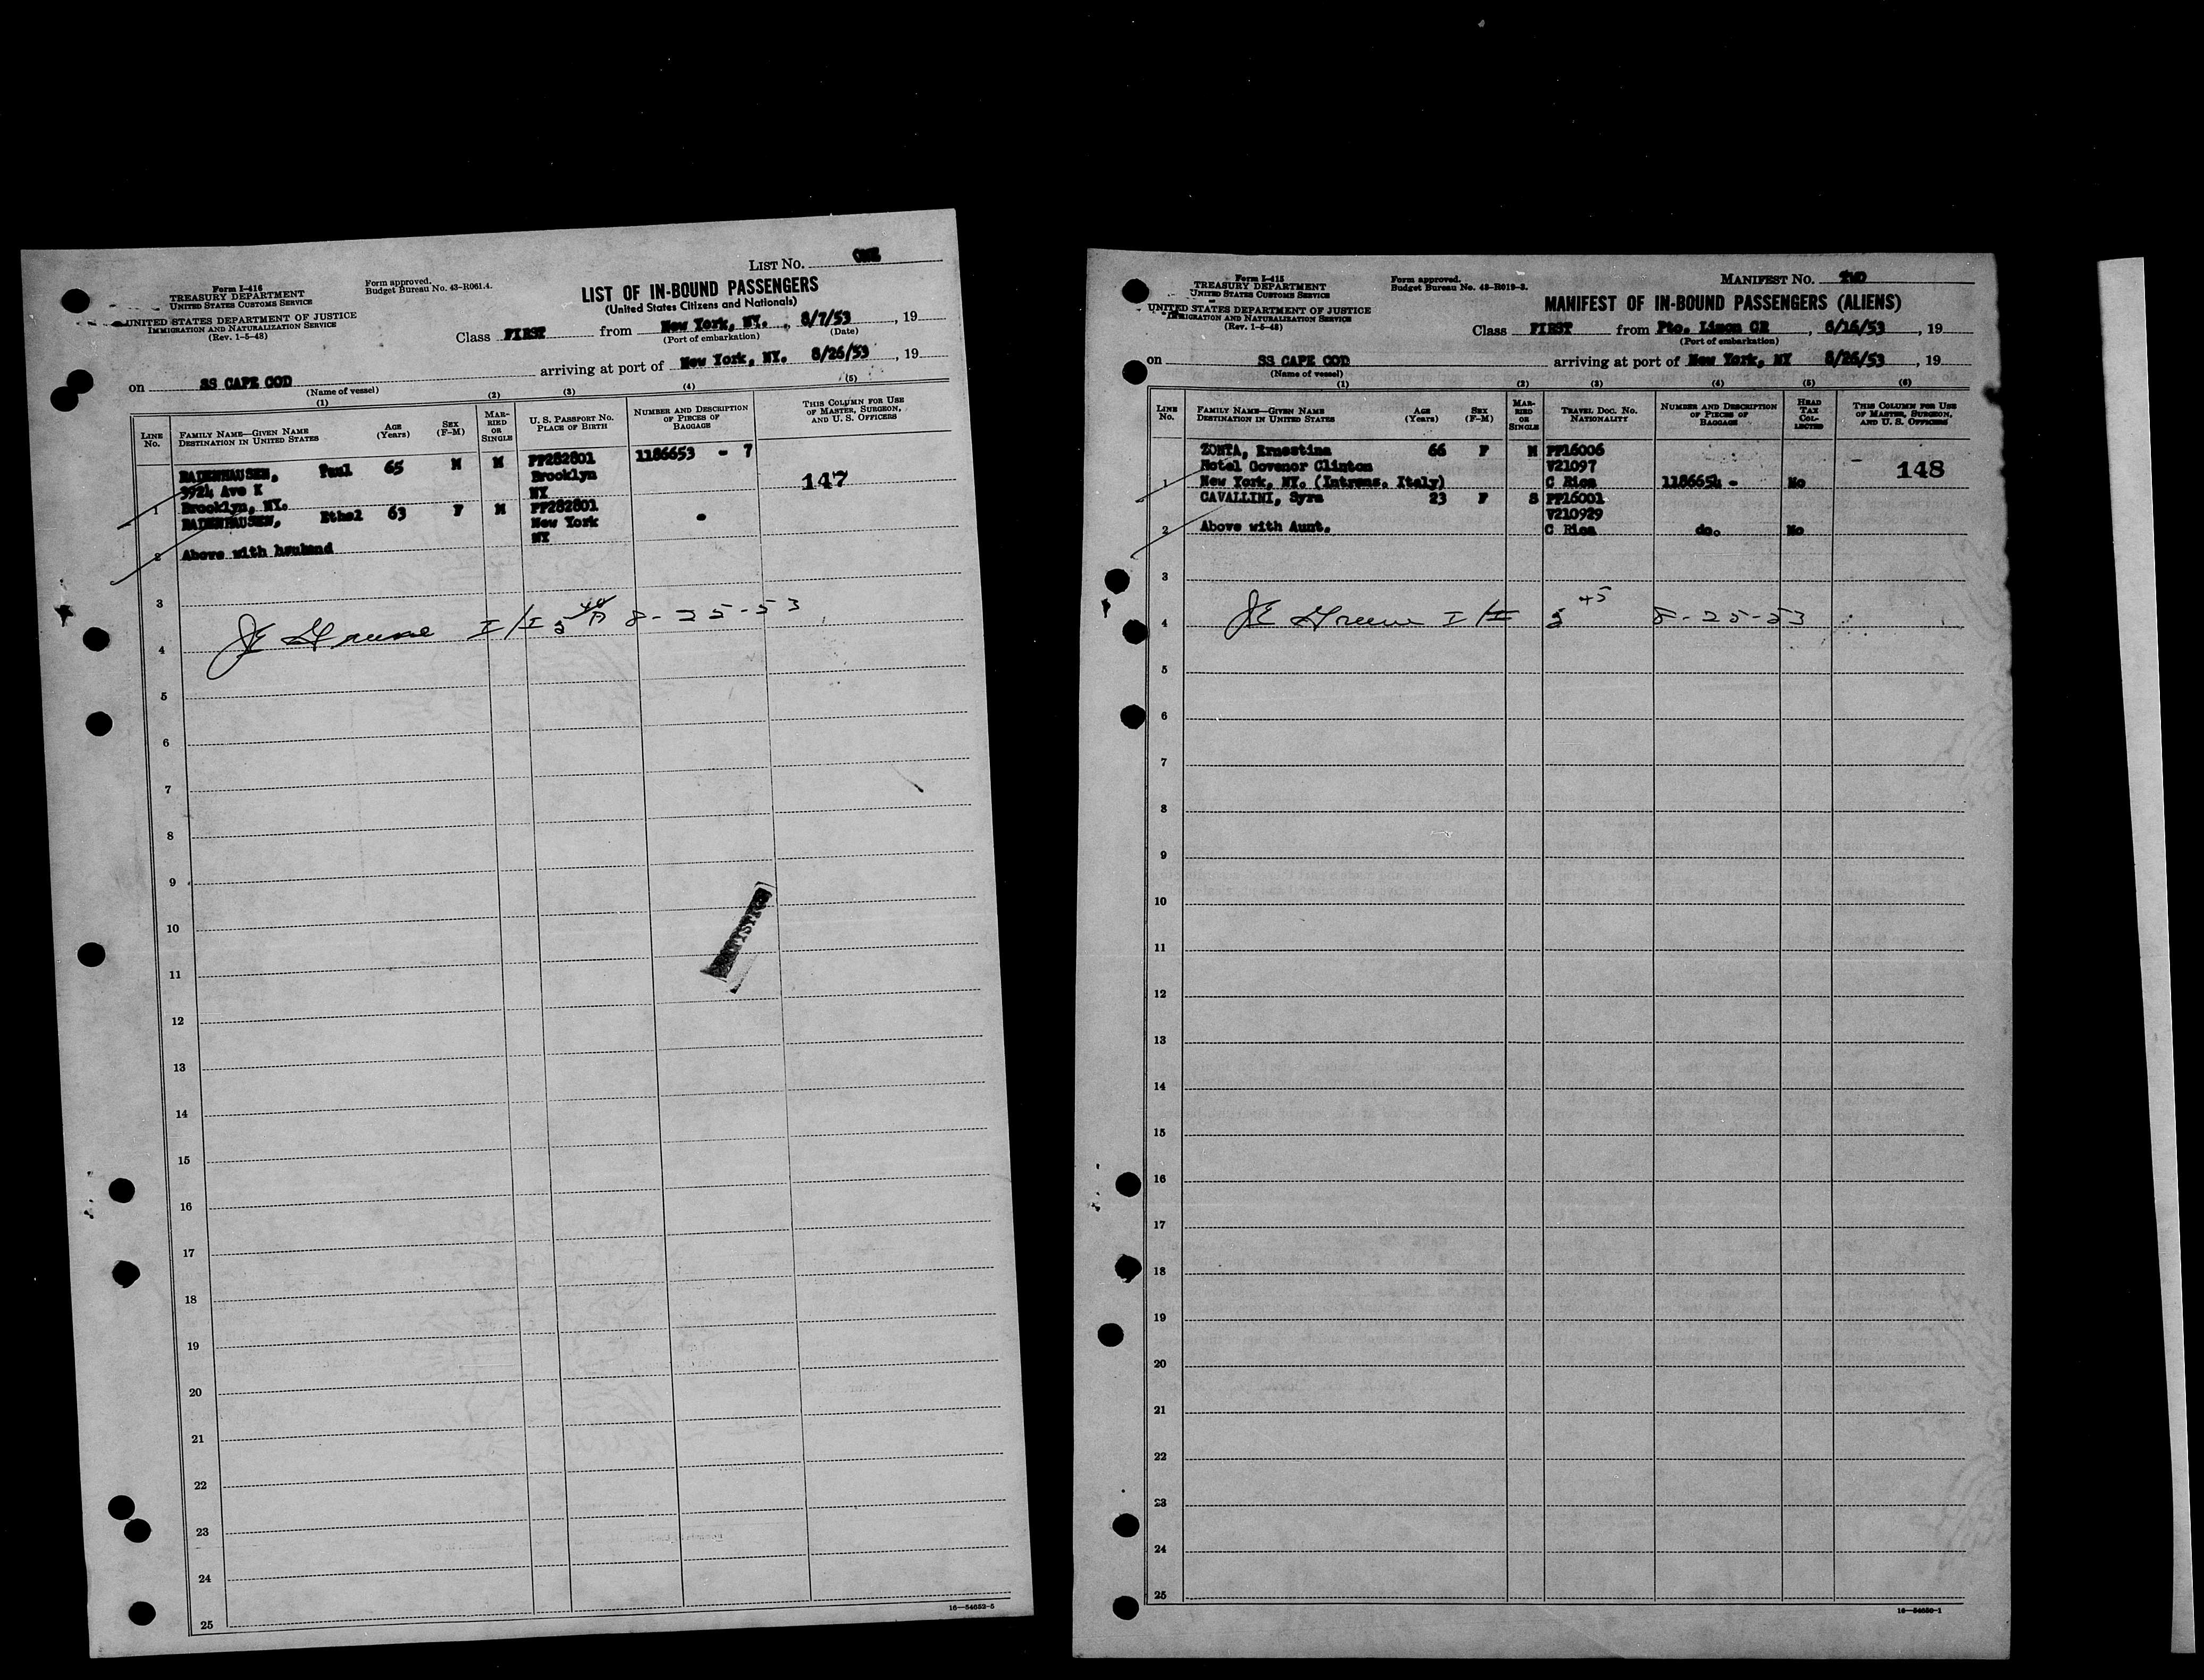 LIST No. ONE
Form I-416
TREASURY DEPARTMENT
UNITED STATES CUSTOMS SERVICE
Form approved.
Budget Bureau No. 43-R061.4.
UNITED STATES DEPARTMENT OF JUSTICE
IMMIGRATION AND NATURALIZATION SERVICE
(Rev. 1-5-48)
LIST OF IN-BOUND PASSENGERS
(United States Citizens and Nationals)
Class FIRST from New York, NY. , 8/7/53 , 19
(Port of embarkation) (Date)
on SS CAPE COD arriving at port of New York, NY. 8/26/53 , 19
(Name of vessel)
(1) (2) (3) (4) (5)
LINE No. FAMILY NAME—GIVEN NAME DESTINATION IN UNITED STATES AGE (Years) SEX (F-M) MARRIED OR SINGLE U. S. PASSPORT NO. PLACE OF BIRTH NUMBER AND DESCRIPTION OF PIECES OF BAGGAGE THIS COLUMN FOR USE OF MASTER, SURGEON, AND U. S. OFFICERS
BADENHAUSEN, Paul 65 M M PP282801 1186653 - 7
3924 Ave K Brooklyn 147
1 Brooklyn, NY. NY
BADENHAUSEN, Ethel 63 F M PP282801
New York -
2 Above with husband NY
3
8-25-53
4
5
6
7
8
9
10
11
12
13
14
15
16
17
18
19
20
21
22
23
24
25
16—54652-5
Form I-415
TREASURY DEPARTMENT
UNITED STATES CUSTOMS SERVICE
Form approved.
Budget Bureau No. 43-R019-3.
MANIFEST No. TWO
UNITED STATES DEPARTMENT OF JUSTICE
IMMIGRATION AND NATURALIZATION SERVICE
(Rev. 1-5-48)
MANIFEST OF IN-BOUND PASSENGERS (ALIENS)
Class FIRST from Pto. Limon CR , 8/16/53 , 19
(Port of embarkation)
on SS CAPE COD arriving at port of New York, NY 8/26/53 , 19
(Name of vessel)
(1) (2) (3) (4) (5) (6)
LINE No. FAMILY NAME—GIVEN NAME DESTINATION IN UNITED STATES AGE (Years) SEX (F-M) MARRIED OR SINGLE TRAVEL DOC. NO. NATIONALITY NUMBER AND DESCRIPTION OF PIECES OF BAGGAGE HEAD TAX COLLECTED THIS COLUMN FOR USE OF MASTER, SURGEON, AND U. S. OFFICERS
ZONTA, Ernestina 66 F M PP16006
Hotel Govenor Clinton V21097 148
1 New York, NY. (Intrans. Italy) C Rica 1186654 - No
CAVALLINI, Syra 23 F S PP16001
V210929
2 Above with Aunt. C Rica do. No
3
8-25-53
4
5
6
7
8
9
10
11
12
13
14
15
16
17
18
19
20
21
22
23
24
25
16—54650-1